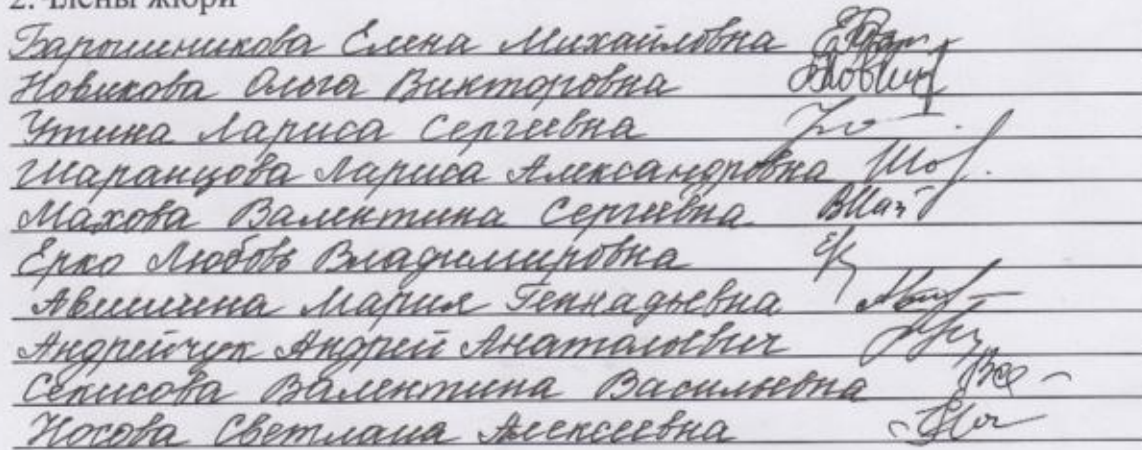 2. Члены жюри
Барошникова Елена Михайловна
Новикова Ольга Викторовна
Утина Лариса Сергеевна
Шаранцова Лариса Александровна
Махова Валентина Сергеевна
Ерко Любовь Владимировна
Мария Геннадьевна
Андрейчук Андрей Анатольевич
Секисова Валентина Васильевна
Носова Светлана Алексеевна